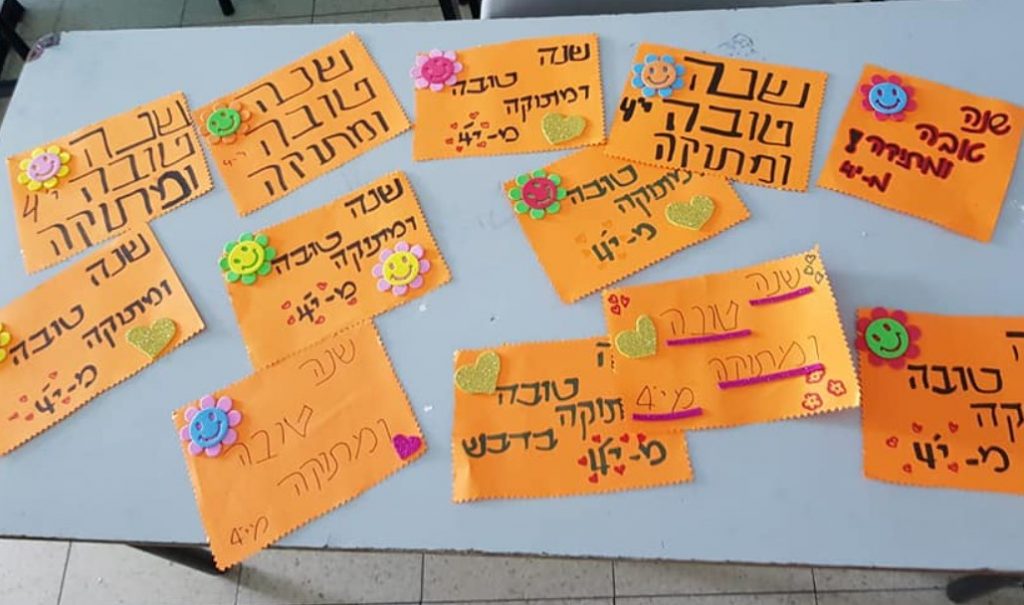 שנה
טובה
ומתוקה
מ-י'4
שנה
טובה
ומתוקה
י'4
שנה
טובה
ומתוקה
מ-י'4
שנה
טובה
ומתוקה
י'4
שנה
טובה
ומתוקה
י'4
טובה
ומתוקה
מ-י'4
שנה
טובה
ומתוקה
מ-י'4
שנה
טובה
ומתוקה
מ-י'4
טובה
מ-י'4
שנה
טובה
ומתוקה
מי'4
טובה
תוקה
בדבש
מ-י'4
שנה
טובה
ומתוקה
מי'4